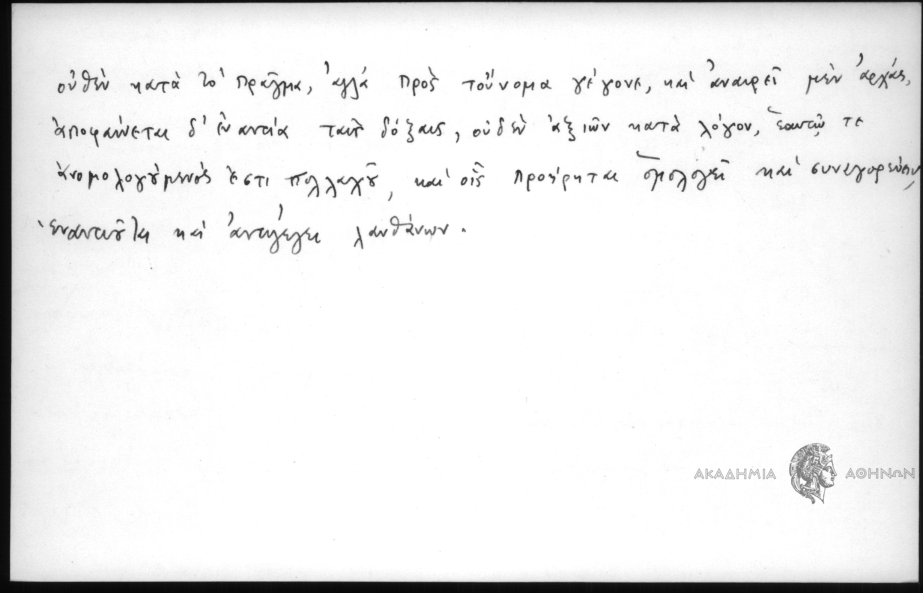 οὐθὲν κατὰ τὸ πρᾶγμα, ἀλλὰ πρὸς τοὔνομα γέγονε, καὶ ἀναιρεῖ μὲν ἀρχάς,
ἀποφαίνεται δ' ἐναντία ταῖς δόξαις, οὐδὲν ἀξιῶν κατὰ λόγον, ἑαυτῷ τε
ἀνομολογούμενός ἐστι πολλαχοῦ, καὶ οἷς προείρηται ὁμολογεῖ καὶ συνεγορεύειν
ἐναντιοῦται καὶ ἀντιλέγει λανθάνων.
ΑΚΑΔΗΜΙΑ ΑΘΗΝΩΝ